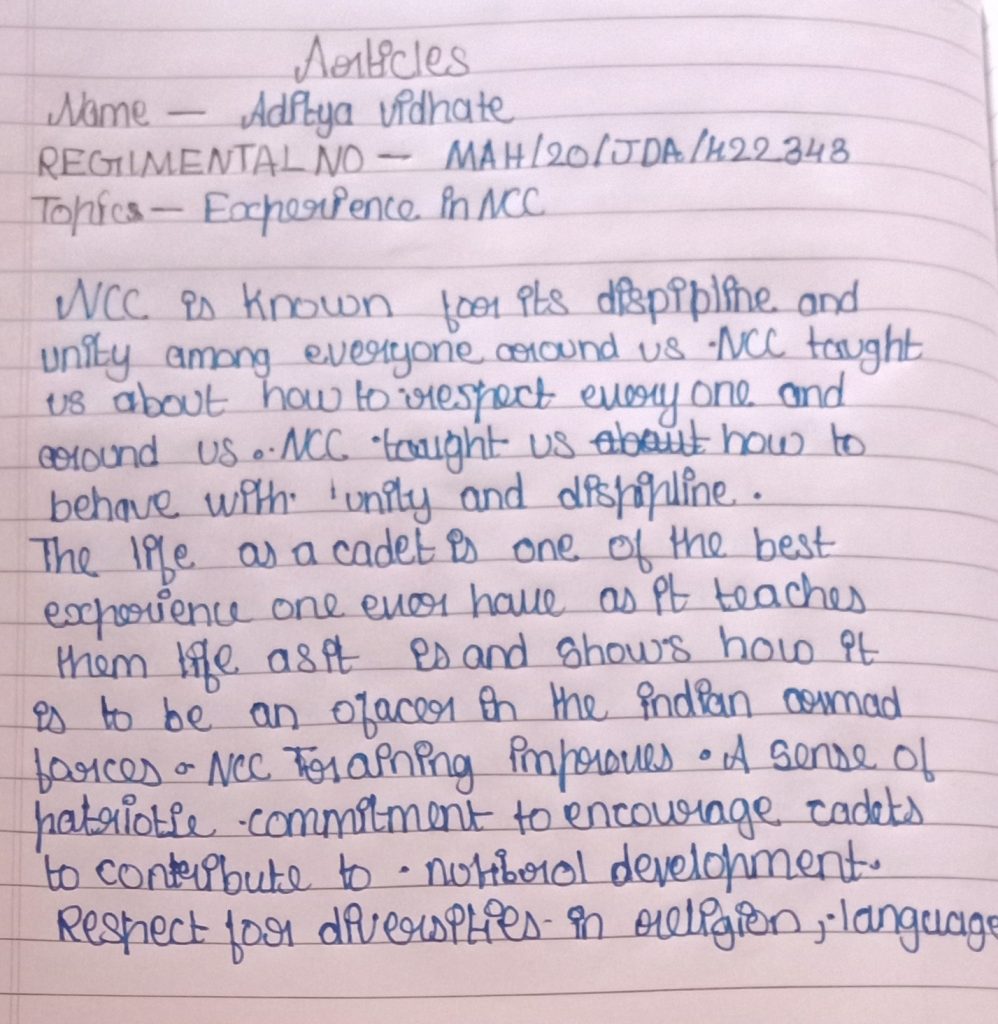 Articles
Name — Aditya vidhate
REGIMENTAL NO — MAH/20/JDA/422348
Topics — Experience in NCC
NCC is known for its dispipline and
unity among everyone around us . NCC taught
us about how to respect everyone and
around us . NCC taught us about how to
behave with unity and dispipline .
The life as a cadet is one of the best
experience one ever have as it teaches
them life as it is and shows how it
is to be an ofacer in the indian armad
forces . NCC Training improves . A sense of
patriotie commitment to encourage cadets
to contribute to development .
Respect for diversities in religion , language